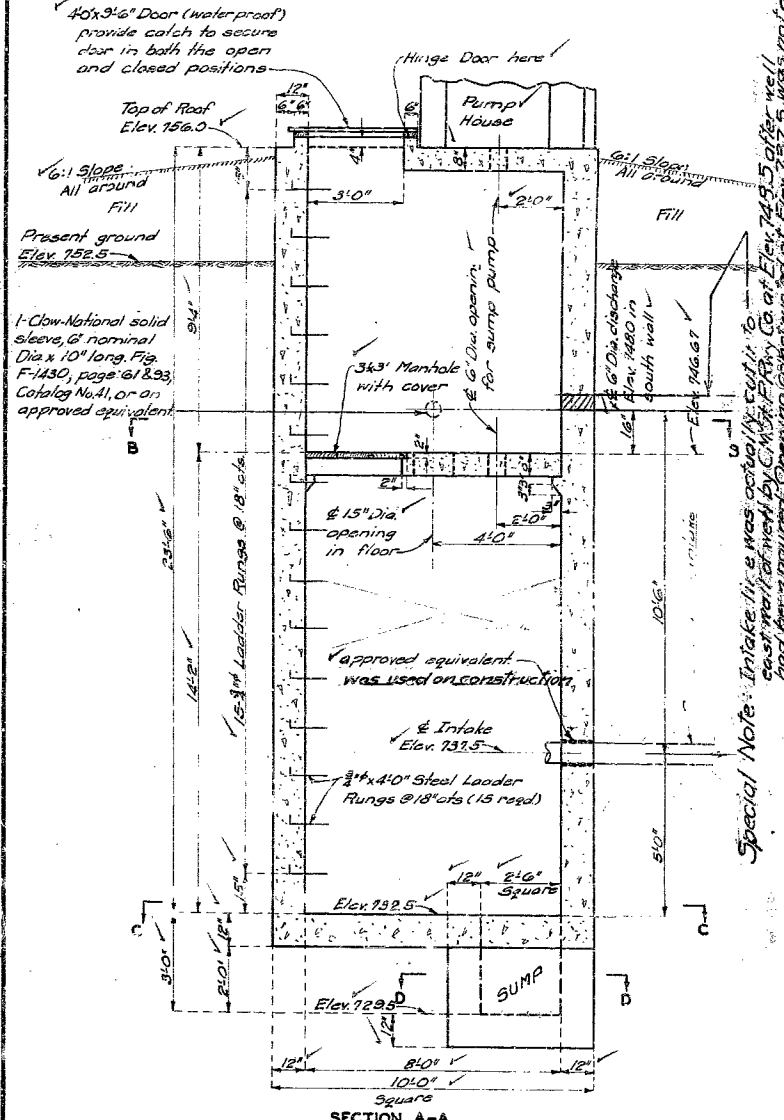 4'-0"x3'-6" Door (waterproof)
provide catch to secure
door in both the open
and closed positions
Hinge Door here
12"
6" 6"
6"
Top of Roof
Elev. 756.0
Pump
House
4"
8"
6:1 Slope
All around
Fill
6:1 Slope
All around
Fill
3'-0"
2'-0"
Present ground
Elev. 752.5
9'-4"
1-Clow-National solid
sleeve, 6" nominal
Dia x 10" long. Fig.
F-1430, page 61 & 93,
Catalog No. 41, or an
approved equivalent
3'x3' Manhole
with cover
℄ 6" Dia. opening
for sump pump
℄ 6" Dia. discharge
Elev. 748.0 in
south wall
Elev. 746.67
16"
B
B
2"
2"
3" 3"
2'-0"
4'-0"
℄ 15" Dia.
opening
in floor
23'-6"
14'-2"
15-¾"φ Ladder Rungs @ 18" cts.
10'-6"
approved equivalent
was used on construction
℄ Intake
Elev. 737.5
¾"φ x 4'-0" Steel Ladder
Rungs @ 18" cts (15 reqd)
5'-0"
15"
12"
2'-6"
Square
Elev. 732.5
C
C
3'-0"
2'-0"
12"
D
D
SUMP
Elev. 729.5
12"
12"
8'-0"
12"
10'-0"
Square
SECTION A-A
Special Note: Intake line was actually cut in to
east wall of well by C.M.St.P. Rwy Co. at Elev. 749.5 after well
had been poured. Opening at Elev. 737.5 was